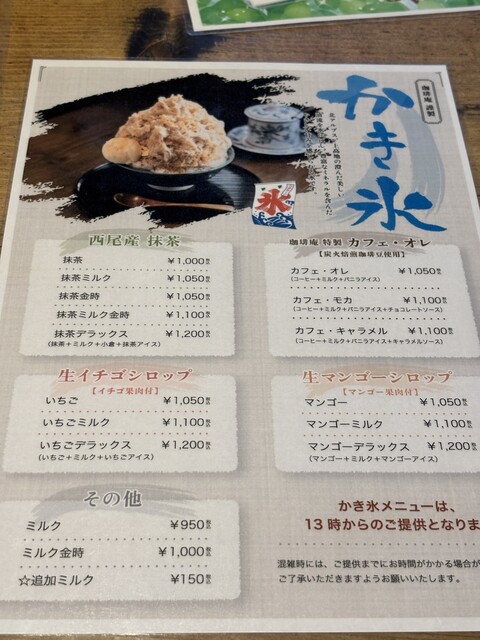 珈琲庵 謹製
かき氷
氷
西尾産 抹茶
抹茶 ¥1,000税込
抹茶ミルク ¥1,050税込
抹茶金時 ¥1,050税込
抹茶ミルク金時 ¥1,100税込
抹茶デラックス ¥1,200税込
(抹茶+ミルク+小倉+抹茶アイス)
珈琲庵 特製 カフェ・オレ
【炭火焙煎珈琲豆使用】
カフェ・オレ ¥1,050税込
(コーヒー+ミルク+バニラアイス)
カフェ・モカ ¥1,100税込
(コーヒー+ミルク+バニラアイス+チョコレートソース)
カフェ・キャラメル ¥1,100税込
(コーヒー+ミルク+バニラアイス+キャラメルソース)
生イチゴシロップ
【イチゴ果肉付】
いちご ¥1,050税込
いちごミルク ¥1,100税込
いちごデラックス ¥1,200税込
(いちご+ミルク+いちごアイス)
生マンゴーシロップ
【マンゴー果肉付】
マンゴー ¥1,050税込
マンゴーミルク ¥1,100税込
マンゴーデラックス ¥1,200税込
(マンゴー+ミルク+マンゴーアイス)
その他
ミルク ¥950税込
ミルク金時 ¥1,000税込
☆追加ミルク ¥150税込
かき氷メニューは、
13時からのご提供となりま
混雑時には、ご提供までにお時間がかかる場合が
ご了承いただきますようお願いいたします。